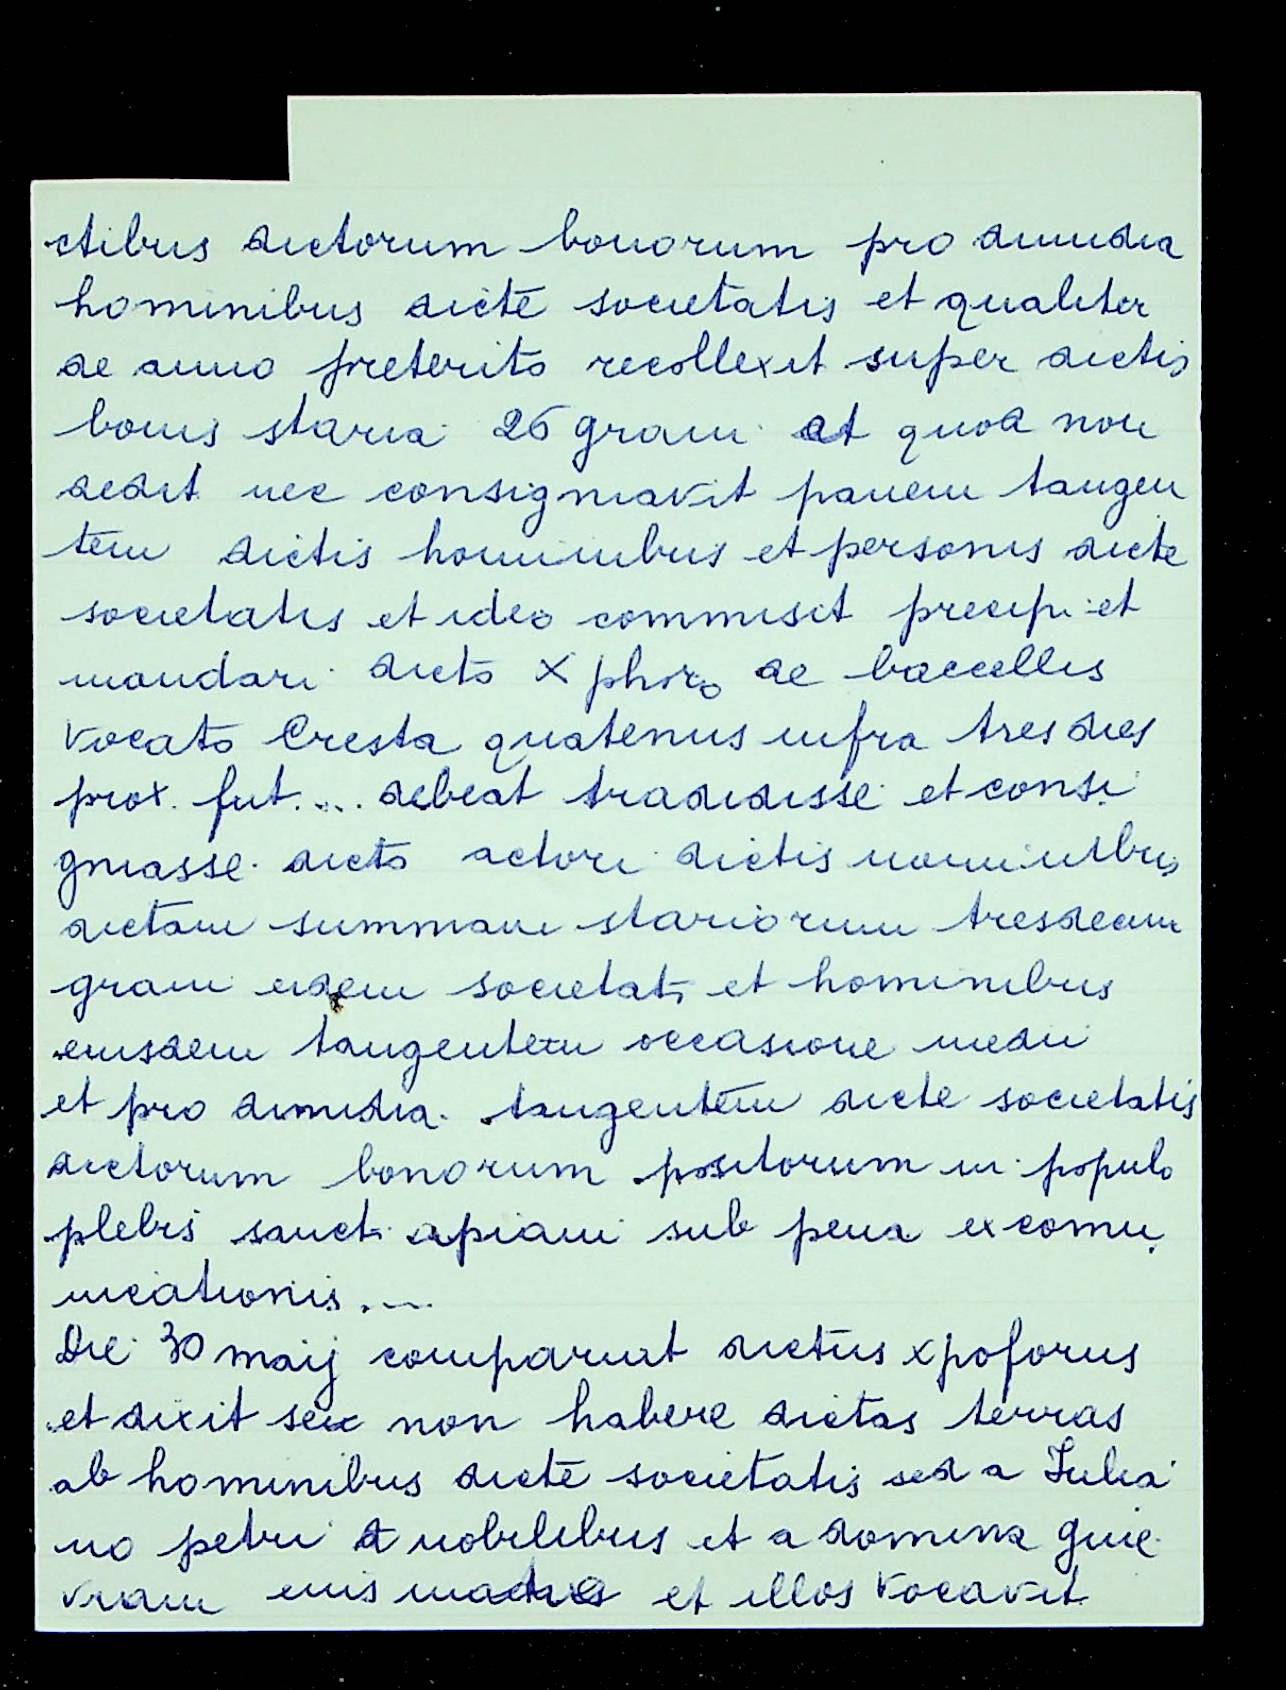 ctibus dictorum bonorum pro dimidia
hominibus dicte societatis et qualiter
de anno preterito recollexit super dictis
bonis staria 26 grani et quod non
dedit nec consigniavit panem tangen
tem dictis hominibus et personis dicte
societatis et ideo commisit precipi et
mandari dicto Xphoro de baccellis
vocato Cresta quatenus infra tres dies
prox. fut. ... debeat tradidisse et consi
gniasse dicto actori dictis nominibus
dictam summam stariorum tresdecim
grani eidem societati et hominibus
eiusdem tangentem occasione medii
et pro dimidia tangentem dicte societatis
dictorum bonorum positorum in populo
plebis sancti apiani sub pena excomu
nicationis ....
Die 30 maij comparuit dictus xpoforus
et dixit se non habere dictas terras
ab hominibus dicte societatis sed a Julia
no petri de nobilibus et a domina
eius et illos vocavit